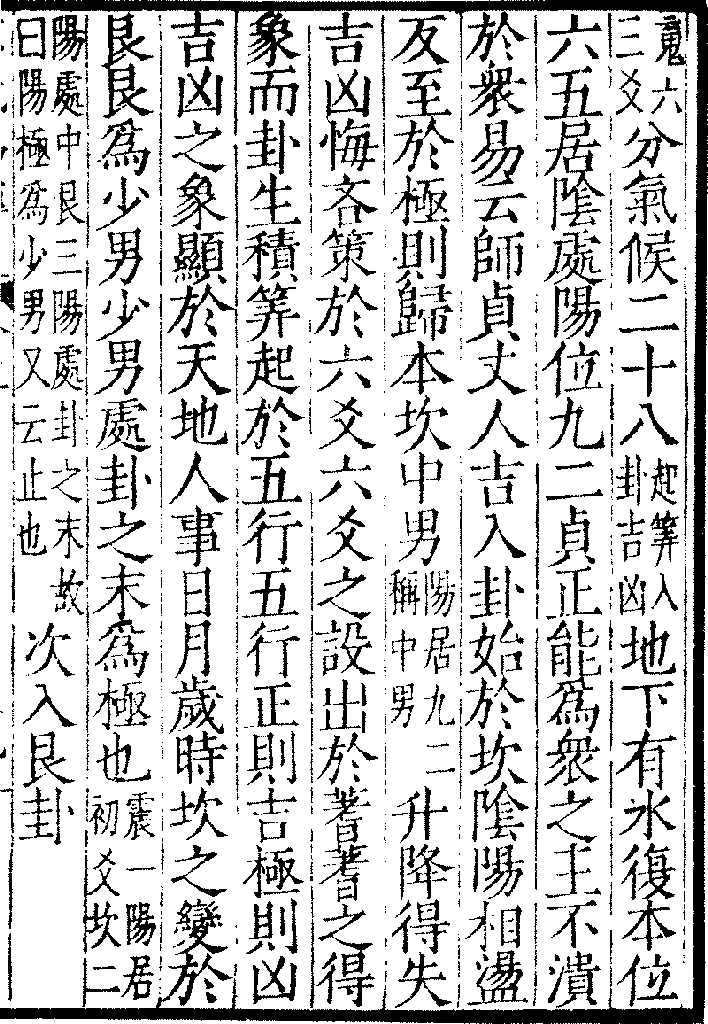 六三爻分氣候二十八起筭入卦吉凶地下有水復本位
六五居陰處陽位九二貞正能爲衆之主不潰
於衆易云師貞丈人吉入卦始於坎陰陽相盪
反至於極則歸本坎中男陽居九二稱中男升降得失
吉凶悔吝策於六爻六爻之設出於蓍蓍之得
象而卦生積筭起於五行五行正則吉極則凶
吉凶之象顯於天地人事日月歲時坎之變於
艮艮爲少男少男處卦之末爲極也震一陽居初爻坎二
陽處中艮三陽處卦之末故曰陽極爲少男又云止也次入艮卦